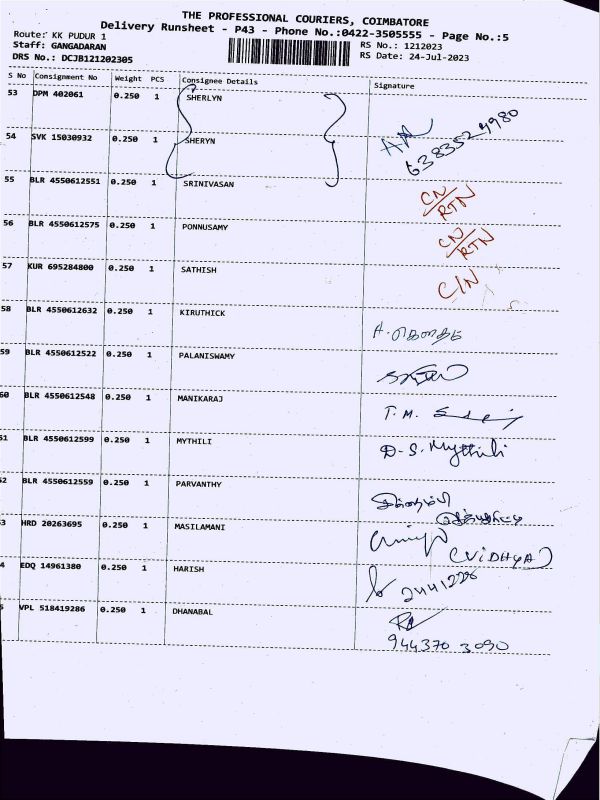 THE PROFESSIONAL COURIERS, COIMBATORE
Delivery Runsheet - P43 - Phone No.:0422-3505555 - Page No.:5
Route: KK PUDUR 1
Staff: GANGADARAN
DRS No.: DCJB121202305
RS No.: 1212023
RS Date: 24-Jul-2023
S No Consignment No Weight PCS Consignee Details Signature
53 DPM 402061 0.250 1 SHERLYN
54 SVK 15030932 0.250 1 SHERYN
6383524980
55 BLR 4550612551 0.250 1 SRINIVASAN CN/RTN
56 BLR 4550612575 0.250 1 PONNUSAMY CN/RTN
57 KUR 695284800 0.250 1 SATHISH C/N
58 BLR 4550612632 0.250 1 KIRUTHICK A.
59 BLR 4550612522 0.250 1 PALANISWAMY
60 BLR 4550612548 0.250 1 MANIKARAJ T.M.
51 BLR 4550612599 0.250 1 MYTHILI D-S. Mythili
52 BLR 4550612559 0.250 1 PARVANTHY
3 HRD 20263695 0.250 1 MASILAMANI (VIDHYA)
4 EDQ 14961380 0.250 1 HARISH 2441226
5 VPL 518419286 0.250 1 DHANABAL
944370 3090